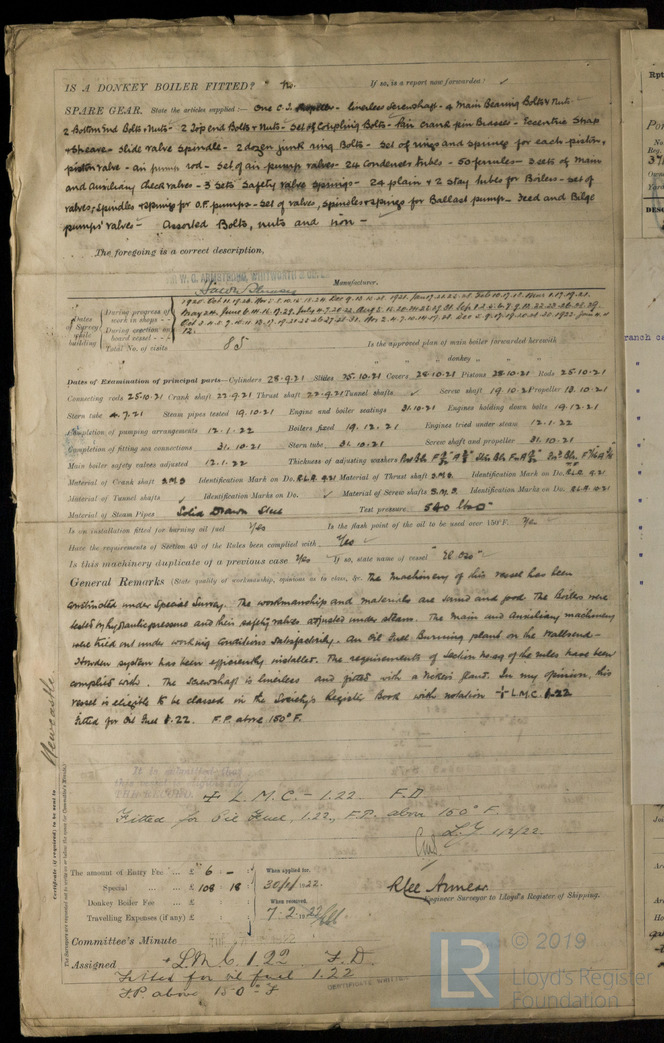 IS A DONKEY BOILER FITTED? " No. If so, is a report now forwarded?
SPARE GEAR. State the articles supplied:— One C.I. Propeller - linerless screwshaft - 4 Main Bearing Bolts & Nuts
2 Bottom End Bolts & Nuts - 2 Top end Bolts & Nuts - Set of Coupling Bolts - Pair crank pin Brasses - Eccentric Strap
& Sheave - Slide valve Spindle - 2 dozen junk ring Bolts - Set of rings and springs for each piston &
piston valve - air pump rod - Set of air pump valves - 24 Condenser tubes - 50 ferrules - 3 sets of main
and Auxiliary Check valves - 3 Sets Safety valve Springs - 24 plain & 2 Stay tubes for Boilers - Set of
valves, Spindles & springs for O.F. pumps - Set of valves, spindles & springs for Ballast pump - Feed and Bilge
pumps valves - Assorted Bolts, nuts and iron -
The foregoing is a correct description,
W. G. ARMSTRONG, WHITWORTH
Manufacturer.
Dates of Survey while building
During progress of work in shops - -
During erection on board vessel - - -
Total No. of visits 85
Is the approved plan of main boiler forwarded herewith
" " " donkey " " "
Dates of Examination of principal parts—Cylinders 28.9.21 Slides 25.10.21 Covers 28.10.21 Pistons 28.10.21 Rods 25.10.21
Connecting rods 25.10.21 Crank shaft 22.9.21 Thrust shaft 22.9.21 Tunnel shafts ✓ Screw shaft 19.10.21 Propeller 13.10.21
Stern tube 4.7.21 Steam pipes tested 19.10.21 Engine and boiler seatings 31.10.21 Engines holding down bolts 19.12.21
Completion of pumping arrangements 12.1.22 Boilers fixed 19.12.21 Engines tried under steam 12.1.22
Completion of fitting sea connections 31.10.21 Stern tube 31.10.21 Screw shaft and propeller 31.10.21
Main boiler safety valves adjusted 12.1.22 Thickness of adjusting washers
Material of Crank shaft S.M.S Identification Mark on Do. R.L.A. 9.21 Material of Thrust shaft S.M.S. Identification Mark on Do. R.L.A. 9.21
Material of Tunnel shafts ✓ Identification Marks on Do. ✓ Material of Screw shafts S.M.S. Identification Marks on Do. R.L.A. 10.21
Material of Steam Pipes Solid Drawn Steel Test pressure 540 lbs
Is an installation fitted for burning oil fuel Yes Is the flash point of the oil to be used over 150°F. Yes
Have the requirements of Section 49 of the Rules been complied with Yes
Is this machinery duplicate of a previous case Yes If so, state name of vessel "El Oso"
General Remarks (State quality of workmanship, opinions as to class, &c. The Machinery of this vessel has been
constructed under Special Survey. The workmanship and materials are sound and good The Boilers were
tested by hydraulic pressure and their safety valves adjusted under steam. The Main and Auxiliary machinery
were tried out under working conditions satisfactorily. An Oil Fuel Burning plant on the Wallsend-
Howden system has been efficiently installed. The requirements of Section No.49 of the rules have been
complied with. The Screwshaft is linerless and fitted with a patent gland. In my opinion, this
vessel is eligible to be classed in the Society's Register Book with notation + L.M.C. 1.22
Fitted for Oil Fuel 1.22. F.P. above 150°F.
It is submitted that
+ L.M.C. - 1.22 F.D
Fitted for Oil Fuel, 1.22, F.P. above 150°F.
1/2/22.
The amount of Entry Fee ... £ 6 : - : When applied for,
Special ... ... £ 108 : 18 : 30/1/1922.
Donkey Boiler Fee ... £ : : When received,
Travelling Expenses (if any) £ : : 7.2.1922
Engineer Surveyor to Lloyd's Register of Shipping.
Committee's Minute
Assigned + L.M.C. 1.22 F.D.
Fitted for oil fuel 1.22
F.P. above 150°F
CERTIFICATE WRITTEN
Newcastle
Certificate (if required) to be sent to
LR © 2019
Lloyd's Register
Foundation
Rpt
DESC
ranch